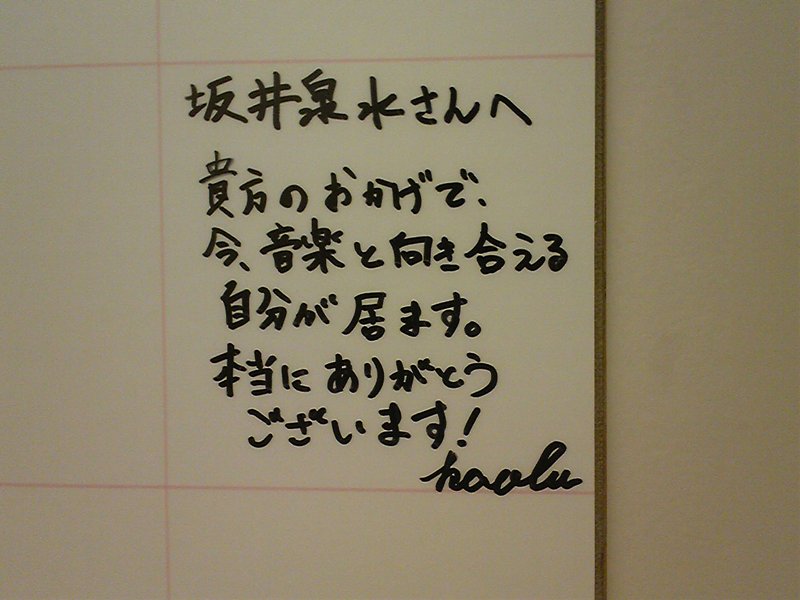 坂井泉水さんへ
貴方のおかげで、
今、音楽と向き合える
自分が居ます。
本当にありがとう
ございます!
kaolu